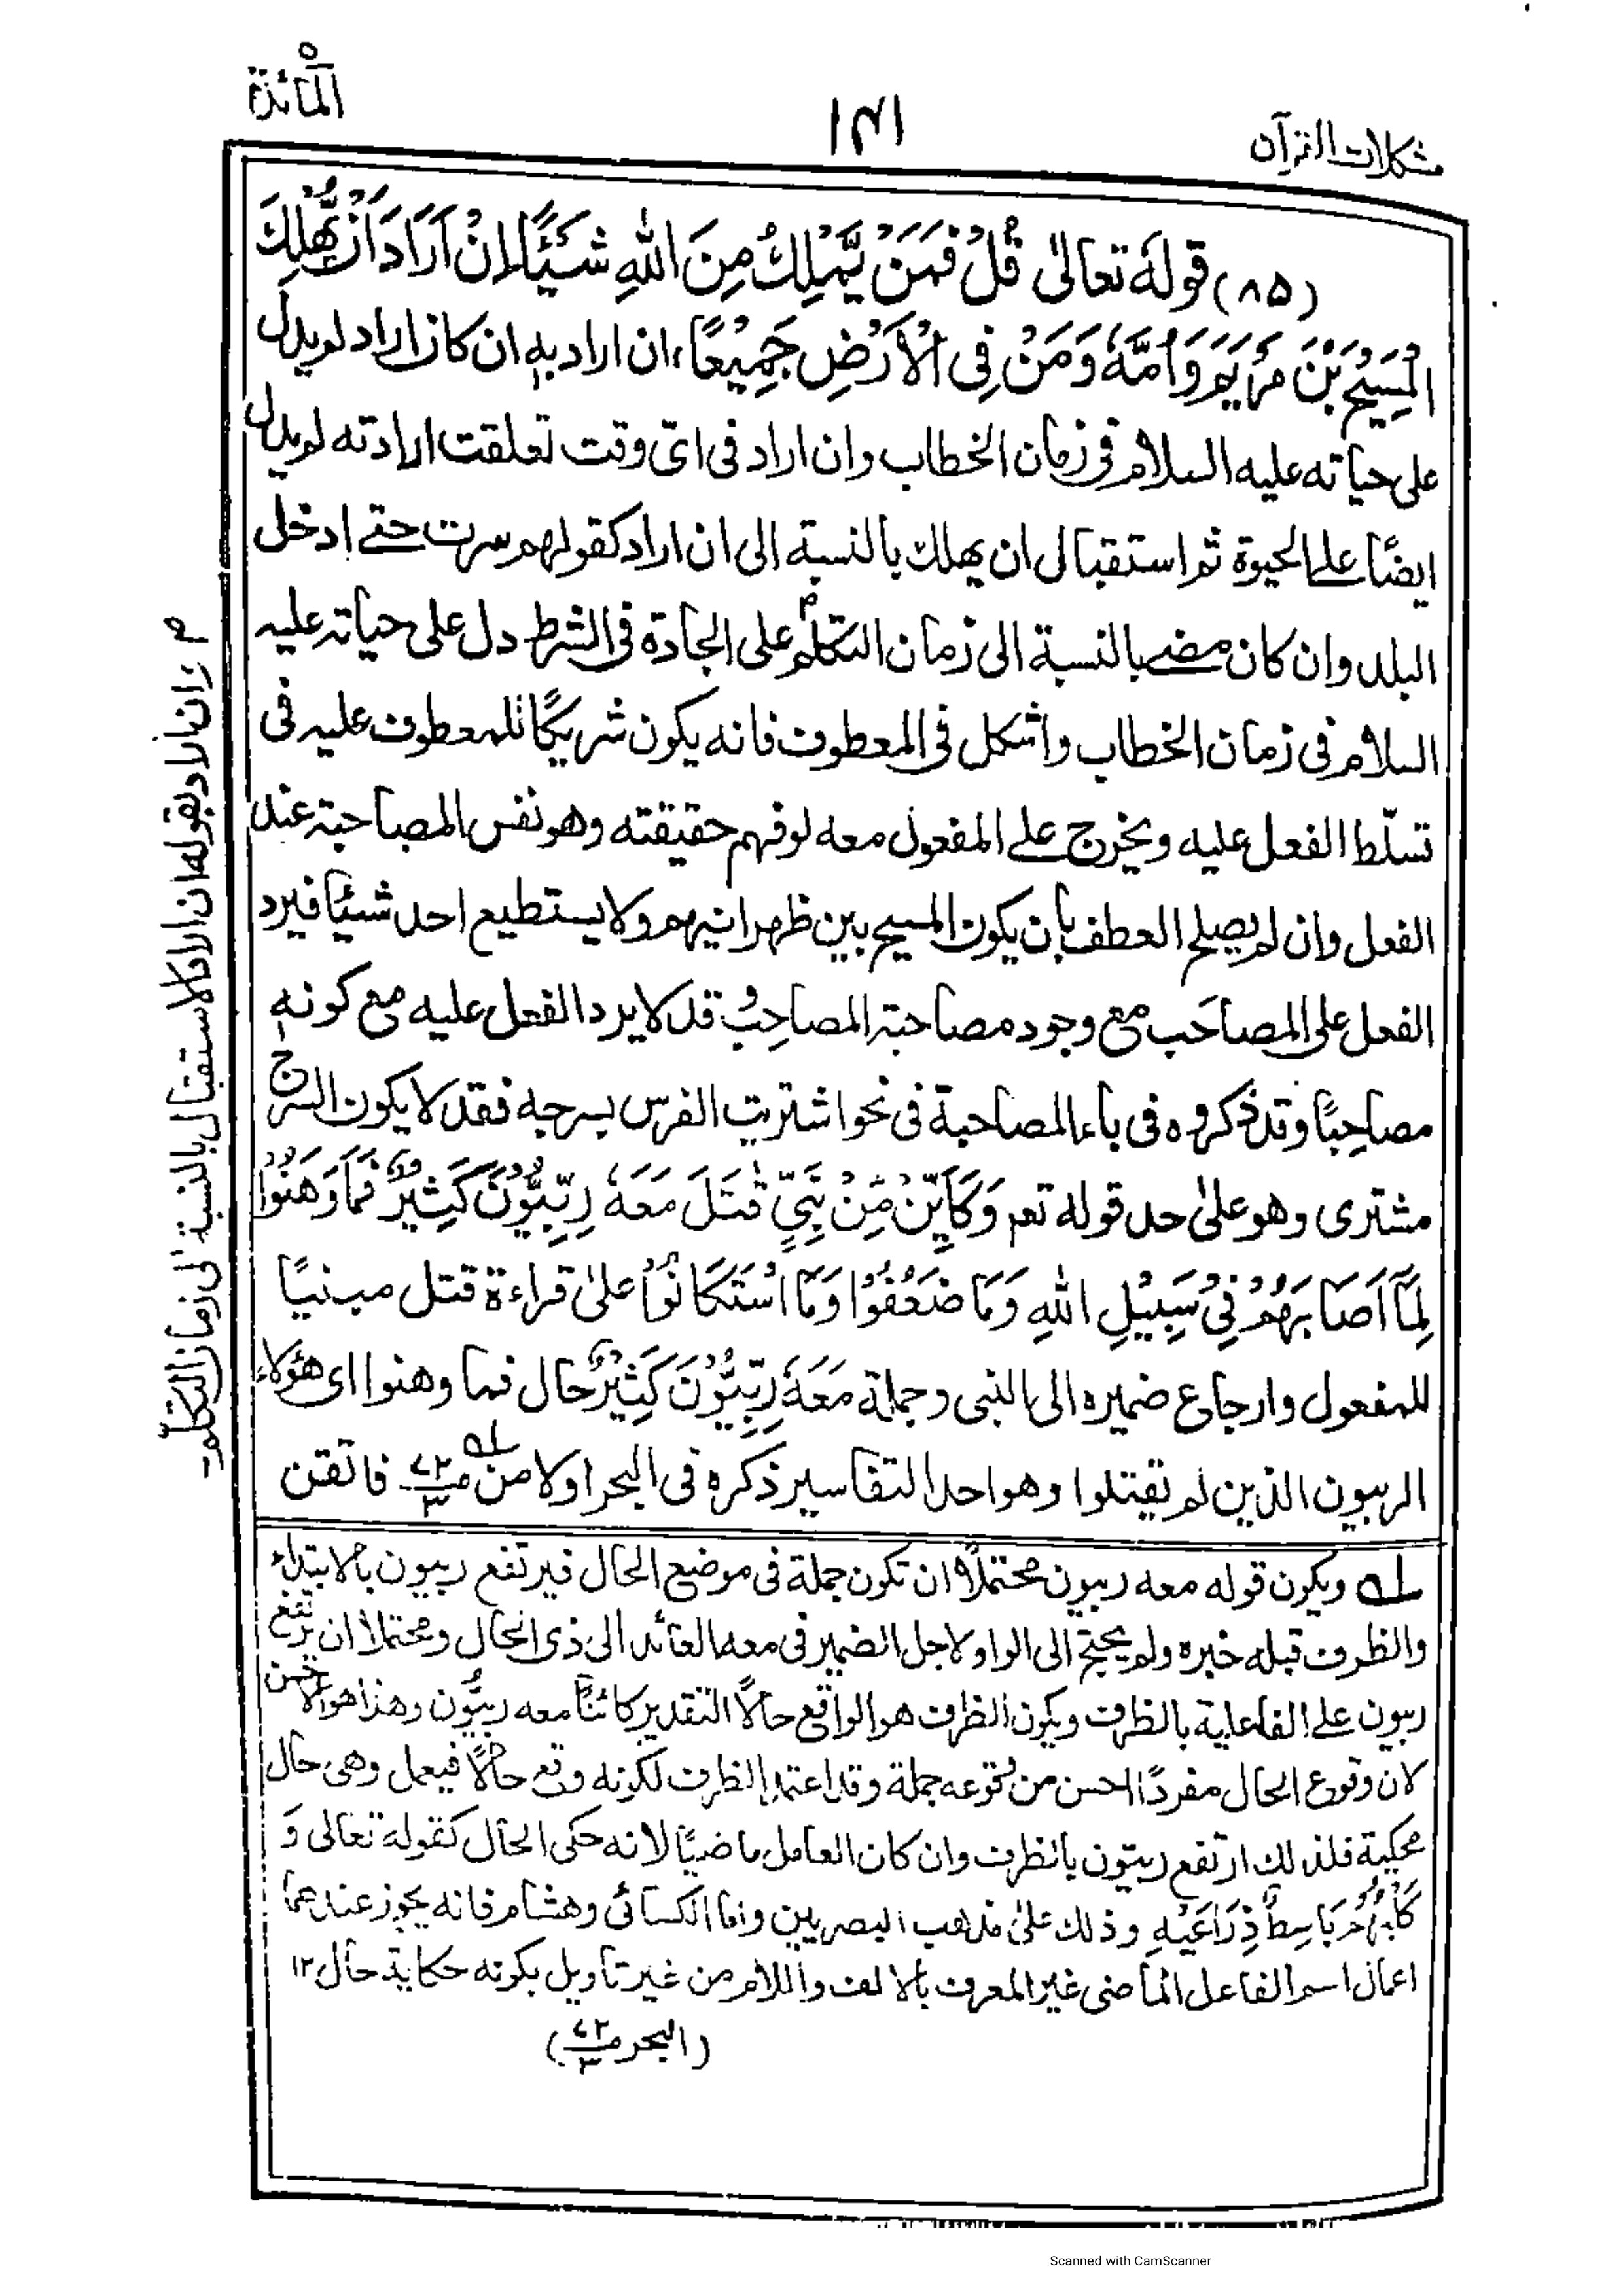 مشكلات القرآن
١٣١
المائدة ٥
(٨٥) قوله تعالىٰ قُلْ فَمَنْ يَّمْلِكُ مِنَ اللّٰهِ شَيْئًا اِنْ اَرَادَ اَنْ يُّهْلِكَ
الْمَسِيْحَ بْنَ مَرْيَمَ وَاُمَّهٗ وَمَنْ فِى الْاَرْضِ جَمِيْعًا، ان اراد به ان كان اراد لم يدل
على حياته عليه السلام فى زمان الخطاب وان اراد فى اىّ وقت تعلقت ارادته لم يدل
ايضًا على الحيوة ثم استقبالى ان يهلك بالنسبة الى ان اراد كقولهم سرت حتى ادخل
البلد وان كان مضى بالنسبة الى زمان التكلم م على الجادة فى الشرط دل على حياته عليه
السلام فى زمان الخطاب واشكل فى المعطوف فانه يكون شريكًا للمعطوف عليه فى
تسلّط الفعل عليه ويخرج على المفعول معه لو فهم حقيقته وهو نفس المصاحبة عند
الفعل وان لم يصلح العطف بأن يكون المسيح بين ظهرانيهم ولا يستطيع احد شيئًا فيرد
الفعل على المصاحَب مع وجود مصاحبة المصاحِب و قد لا يرد الفعل عليه مع كونه
مصاحِبًا وقد ذكروه فى باء المصاحبة فى نحو اشتريت الفرس بسرجه فقد لا يكون السرج
مشترى وهو علىٰ حد قوله تعم وَكَاَيِّنْ مِّنْ نَّبِيٍّ قٰتَلَ مَعَهٗ رِبِّيُّوْنَ كَثِيْرٌ فَمَا وَهَنُوْا
لِمَآ اَصَابَهُمْ فِيْ سَبِيْلِ اللّٰهِ وَمَا ضَعُفُوْا وَمَا اسْتَكَانُوْا علىٰ قراءة قتل مبنيًا
للمفعول وارجاع ضميره الى النبى وجملة مَعَهٗ رِبِّيُّوْنَ كَثِيْرٌ حال فما وهنوا اى هؤلاء
الربيون الذين لم يقتلوا وهو احد التفاسير ذكره فى البحر اولا من ص٧٢/٣ له فاتقن
م وان اراد بقوله ان اراد الاستقبال بالنسبة الى زمان التكلم
له ويكون قوله معه ربيون محتملًا ان تكون جملة فى موضع الحال فيرتفع ربيون بالابتداء
والظرف قبله خبره ولم يحتج الى الواو لاجل الضمير فى معه العائد الى ذى الحال ومحتملا ان يرتفع
ربيون على الفاعلية بالظرف ويكون الظرف هو الواقع حالًا التقدير كائنًا معه ربيُّون وهذا هو الاحسن
لان وقوع الحال مفردًا احسن من وقوعه جملة وقد اعتمد الظرف لكونه وقع حالًا فيعمل وهى حال
محكية فلذلك ارتفع ربيّون بالظرف وان كان العامل ماضيًا لانه حكى الحال كقوله تعالى وَ
كَلْبُهُمْ بَاسِطٌ ذِرَاعَيْهِ وذلك علىٰ مذهب البصريين واما الكسائى وهشام فانه يجوز عندهما
اعمال اسم الفاعل الماضى غير المعرف بالالف واللام من غير تاويل بكونه حكاية حال ١٢
(البحر ص٧٢/٣)
Scanned with CamScanner